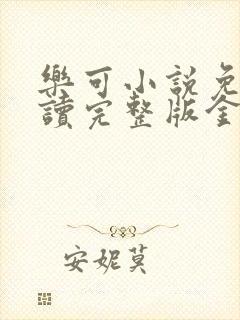 樂可小說免
讀完整版全
安妮莫